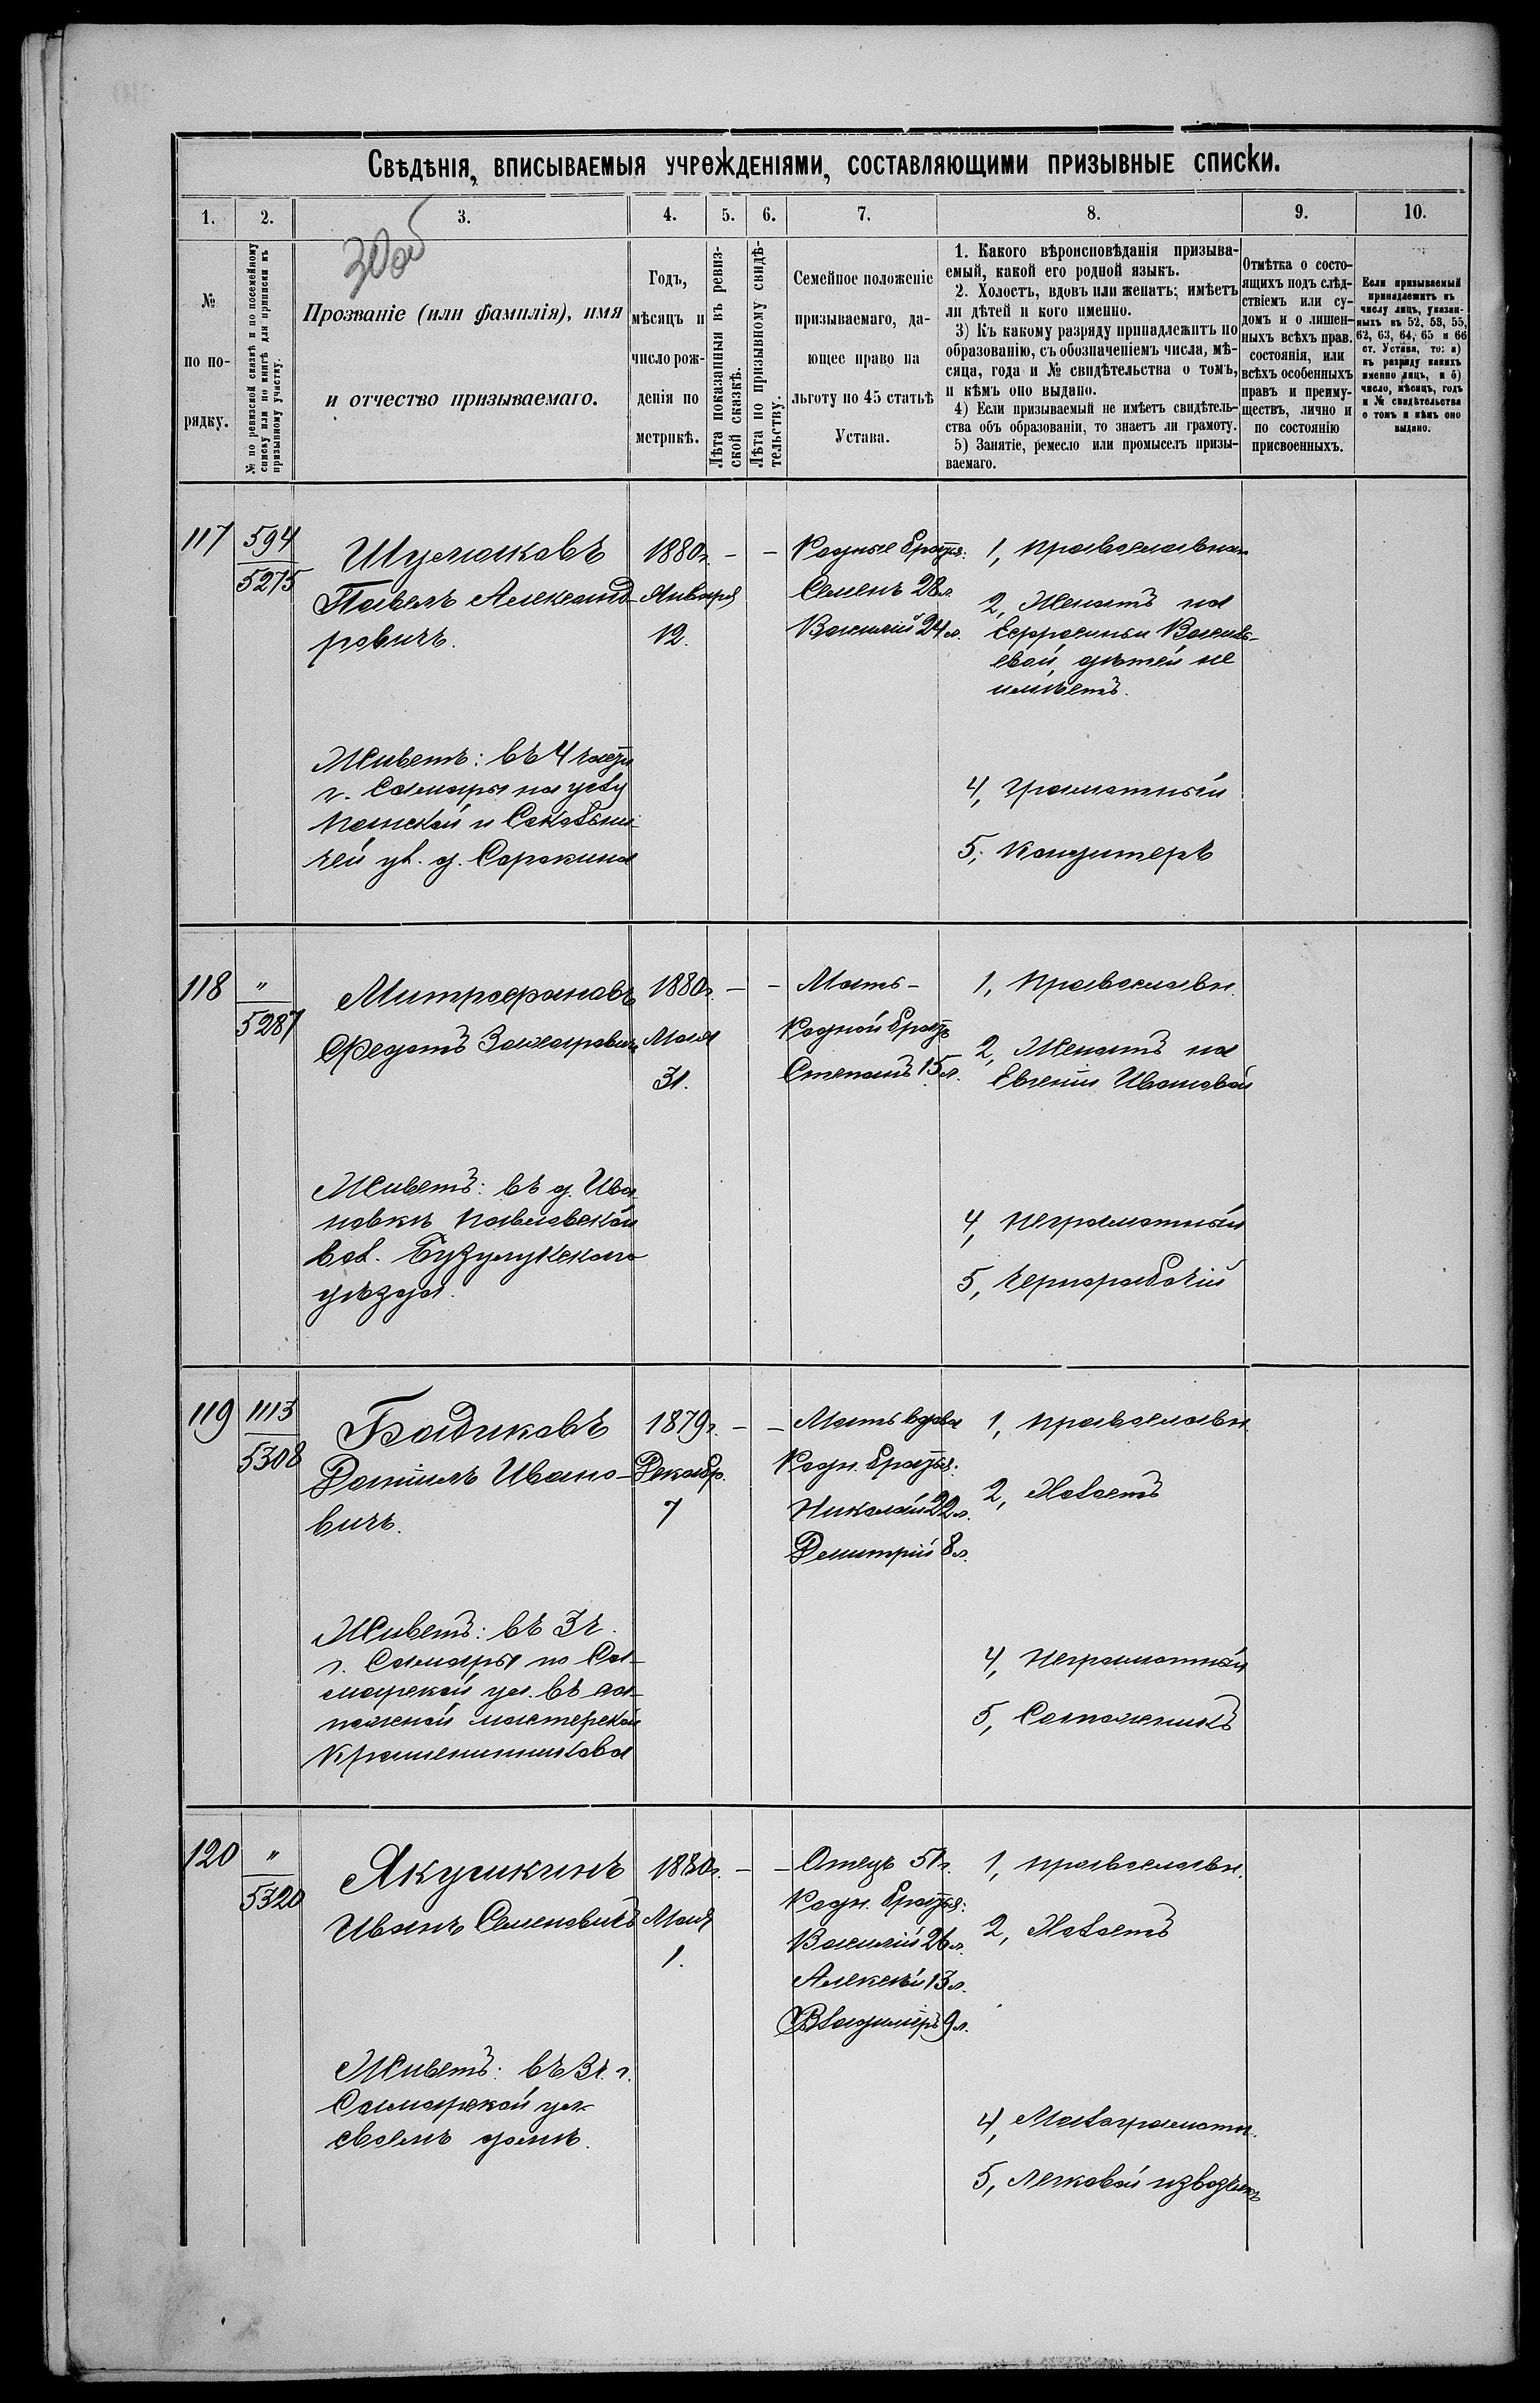 Свѣдѣнія, вписываемыя учрежденіями, составляющими призывные списки.
1. 2. 3. 4. 5. 6. 7. 8. 9. 10.
30об
№
по по-
рядку.
№ по ревизской сказкѣ и по посемейному
списку или по книгѣ для приписки къ
призывному участку.
Прозваніе (или фамилія), имя
и отчество призываемаго.
Годъ,
мѣсяцъ и
число рож-
денія по
метрикѣ.
Лѣта показанныя въ ревиз-
ской сказкѣ.
Лѣта по призывному свидѣ-
тельству.
Семейное положеніе
призываемаго, да-
ющее право на
льготу по 45 статьѣ
Устава.
1. Какого вѣроисповѣданія призыва-
емый, какой его родной языкъ.
2. Холостъ, вдовъ или женатъ; имѣетъ
ли дѣтей и кого именно.
3) Къ какому разряду принадлежитъ по
образованію, съ обозначеніемъ числа, мѣ-
сяца, года и № свидѣтельства о томъ,
и кѣмъ оно выдано.
4) Если призываемый не имѣетъ свидѣтель-
ства объ образованіи, то знаетъ ли грамоту.
5) Занятіе, ремесло или промыселъ призы-
ваемаго.
Отмѣтка о состо-
ящихъ подъ слѣд-
ствіемъ или су-
домъ и о лишен-
ныхъ всѣхъ прав.
состоянія, или
всѣхъ особенныхъ
правъ и преиму-
ществъ, лично и
по состоянію
присвоенныхъ.
Если призываемый
принадлежитъ къ
числу лицъ, указан-
ныхъ въ 52, 53, 55,
62, 63, 64, 65 и 66
ст. Устава, то: а)
къ разряду какихъ
именно лицъ, и б)
число, мѣсяцъ, годъ
и № свидѣтельства
о томъ и кѣмъ оно
выдано.
117
594
5275
Шумолковъ
Павелъ Александ-
ровичъ.
Живетъ: въ 4 части
г. Самары на углу
Почтовой и Сокольни-
чей ул. д. Сорокина
1880г.
Января
12.
– –
Родные братья:
Семенъ 28л.
Василій 24л.
1, Православная
2, Женатъ на
Ефросиньи Василь-
евой, дѣтей не
имѣетъ.
4, Грамотный
5, Кондитеръ
118
"
5287
Митрофановъ
Федотъ Захаровичъ
Живетъ: въ д. Ива-
новкѣ Павловской
вол. Бузулукскаго
уѣзда.
1880г.
Мая
31.
– –
Мать –
Родной братъ
Степанъ 15л.
1, Православн.
2, Женатъ на
Евгеніи Ивановой
4, Неграмотный
5, Чернорабочій
119
1113
5308
Бадиковъ
Даніилъ Ивано-
вичъ.
Живетъ: въ 3ч.
г. Самары по Са-
марской ул. въ са-
пожной мастерской
Крашенинникова
1879г.
Декабр.
7
– –
Мать вдова
Родн. братья:
Николай 22л.
Димитрій 8л.
1, Православн.
2, Холостъ
4, Неграмотный
5, Сапожникъ
120
"
5320
Якушкинъ
Иванъ Семеновичъ
Живетъ: въ 3ч. г.
Самарской ул.
своемъ домѣ.
1880г.
Мая
1.
– –
Отецъ 51г.
Родн. братья:
Василій 26л.
Алексѣй 13л.
Владиміръ 9л.
1, Православн.
2, Холостъ
4, Малограмотн.
5, Легковой извозчикъ